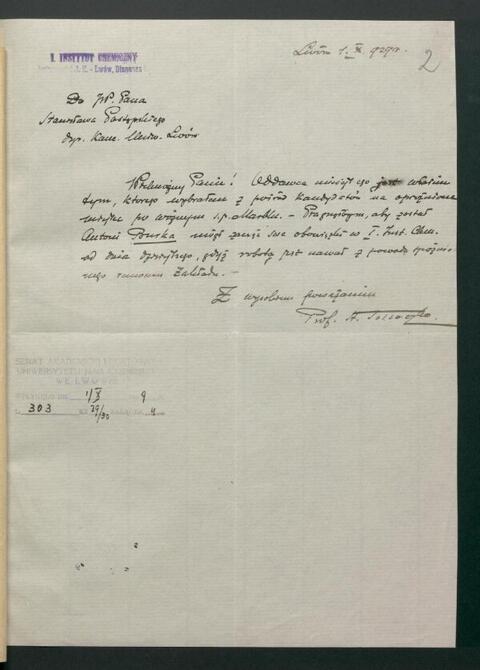 I. INSTYTUT CHEMICZNY
Lwów, Długosza
Lwów 1. X 929 r.
2
Do JW. Pana
Stanisława
dyr. Kanc. Uniw. Lwów
Wielmożny Panie! Oddawca niniejszego jest właśnie
tym, którego wybrałem z pośród kandydatów na opróżnione
miejsce po woźnym ś. p. – Pragnąłbym, aby został
Antoni Burka mógł zająć swe obowiązki w I. Inst. Chem.
od dnia dzisiejszego, gdyż roboty jest nawał z powodu
remontu Zakładu. –
Z wysokiem poważaniem
Prof.
SENAT AKADEMICKI
UNIWERSYTETU JANA KAZIMIERZA
WE LWOWIE
1/X 9
303 29/30 4